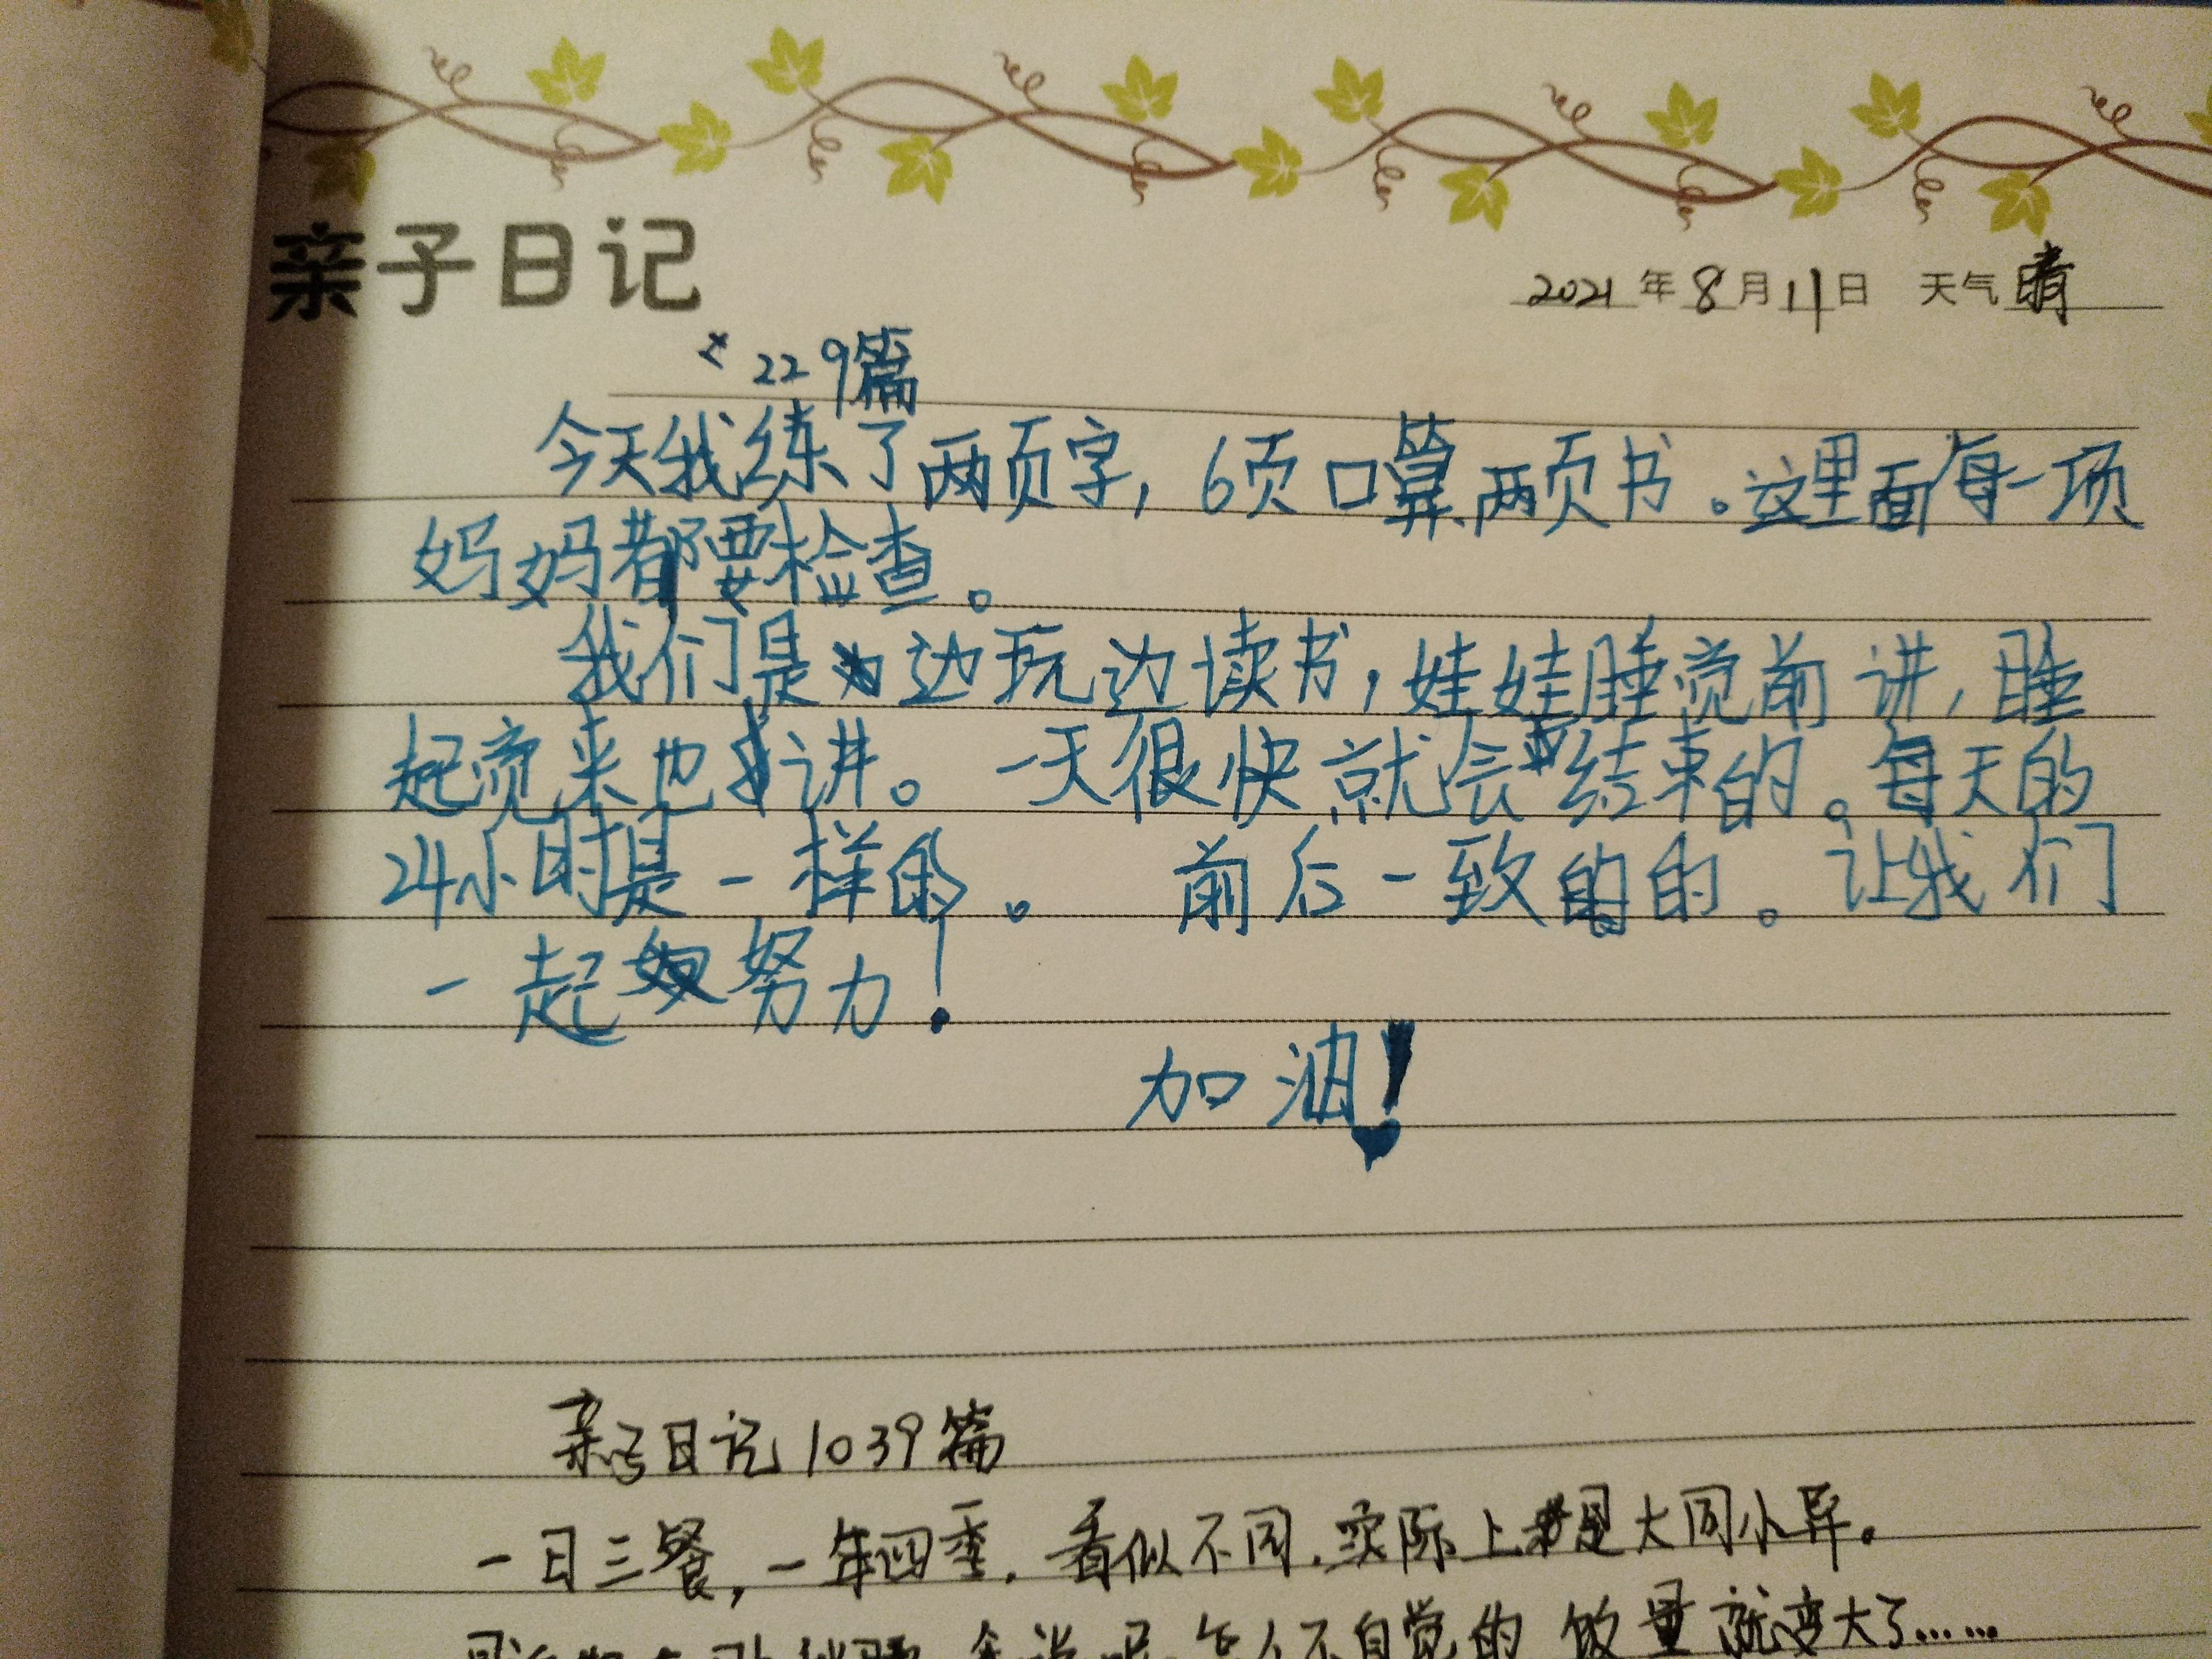 亲子日记
2021年8月11日 天气 晴
229篇
今天我练了两页字，6页口算，两页书。这里面每一项
妈妈都要检查。
我们是边玩边读书，娃娃睡觉前讲，睡
起觉来也讲。一天很快就会结束的。每天的
24小时是一样的。 前后一致的的。让我们
一起努力！
加油！
亲子日记1039篇
一日三餐，一年四季，看似不同，实际上都是大同小异。
怎么不自觉的饭量就变大了……